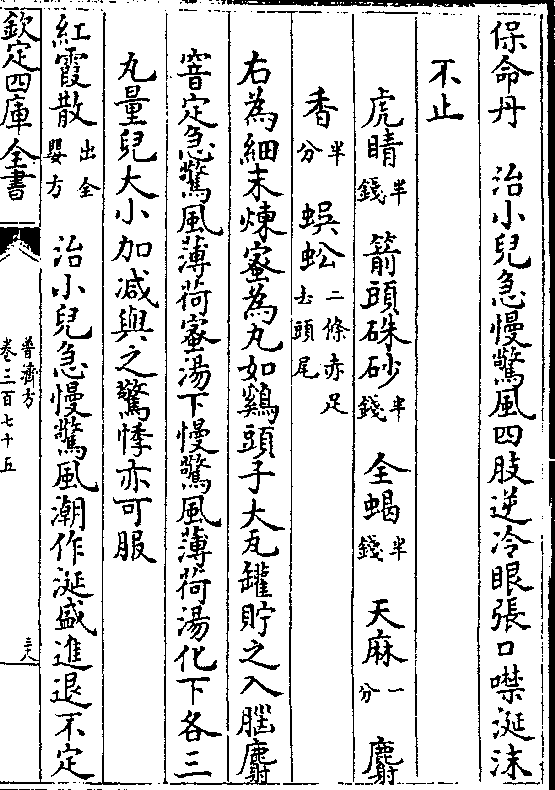 保命丹　治小兒急慢驚風四肢逆冷眼張口噤涎沫
不止
虎睛半錢　箭頭硃砂半錢　全蝎半錢　天麻一分　麝
香半分　蜈蚣二條赤足去頭尾
右為細末煉蜜為丸如鷄頭子大瓦罐貯之入腦麝
窨定急驚風薄荷蜜湯下慢驚風薄荷湯化下各三
丸量兒大小加減與之驚悸亦可服
紅霞散出全嬰方　治小兒急慢驚風潮作涎盛進退不定
欽定四庫全書
普濟方
卷三百七十五
三八